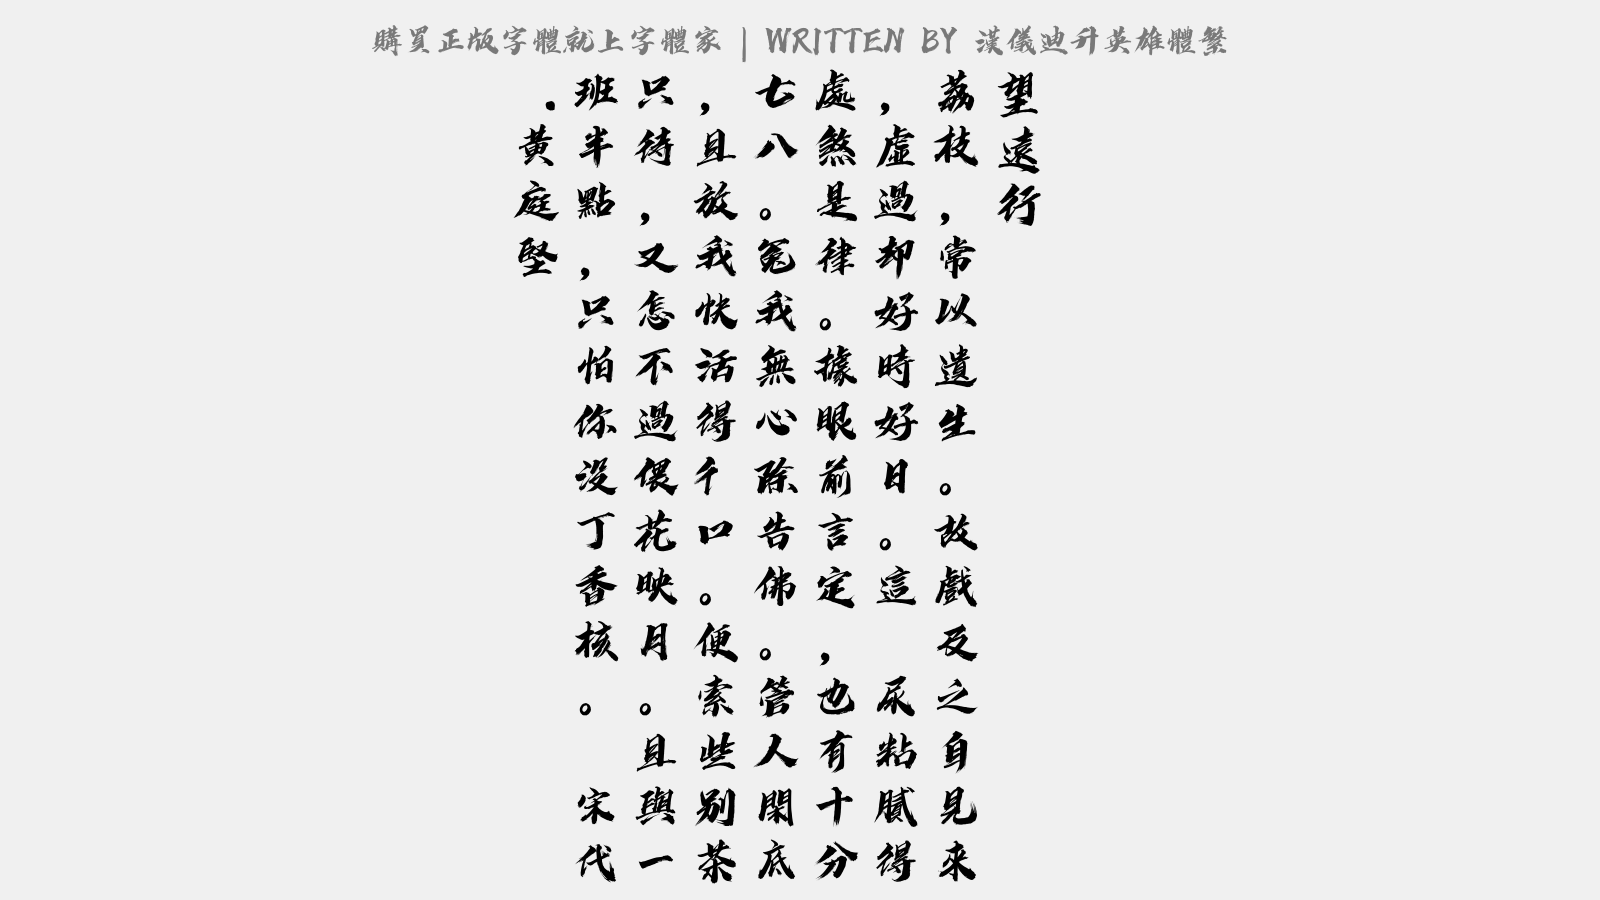 購買正版字體就上字體家 | WRITTEN BY 漢儀迪升英雄體繁
望遠行
荔枝，常以遺生。故戲及之自見來
，虛過却好時好日。這 尿粘膩得
處煞是律。據眼前言定，也有十分
七八。冤我無心除告佛。管人閑底
，且放我快活得千口。便索些别茶
只待，又怎不過偎花映月。且與一
班半點，只怕你没丁香核。 宋代
.黃庭堅